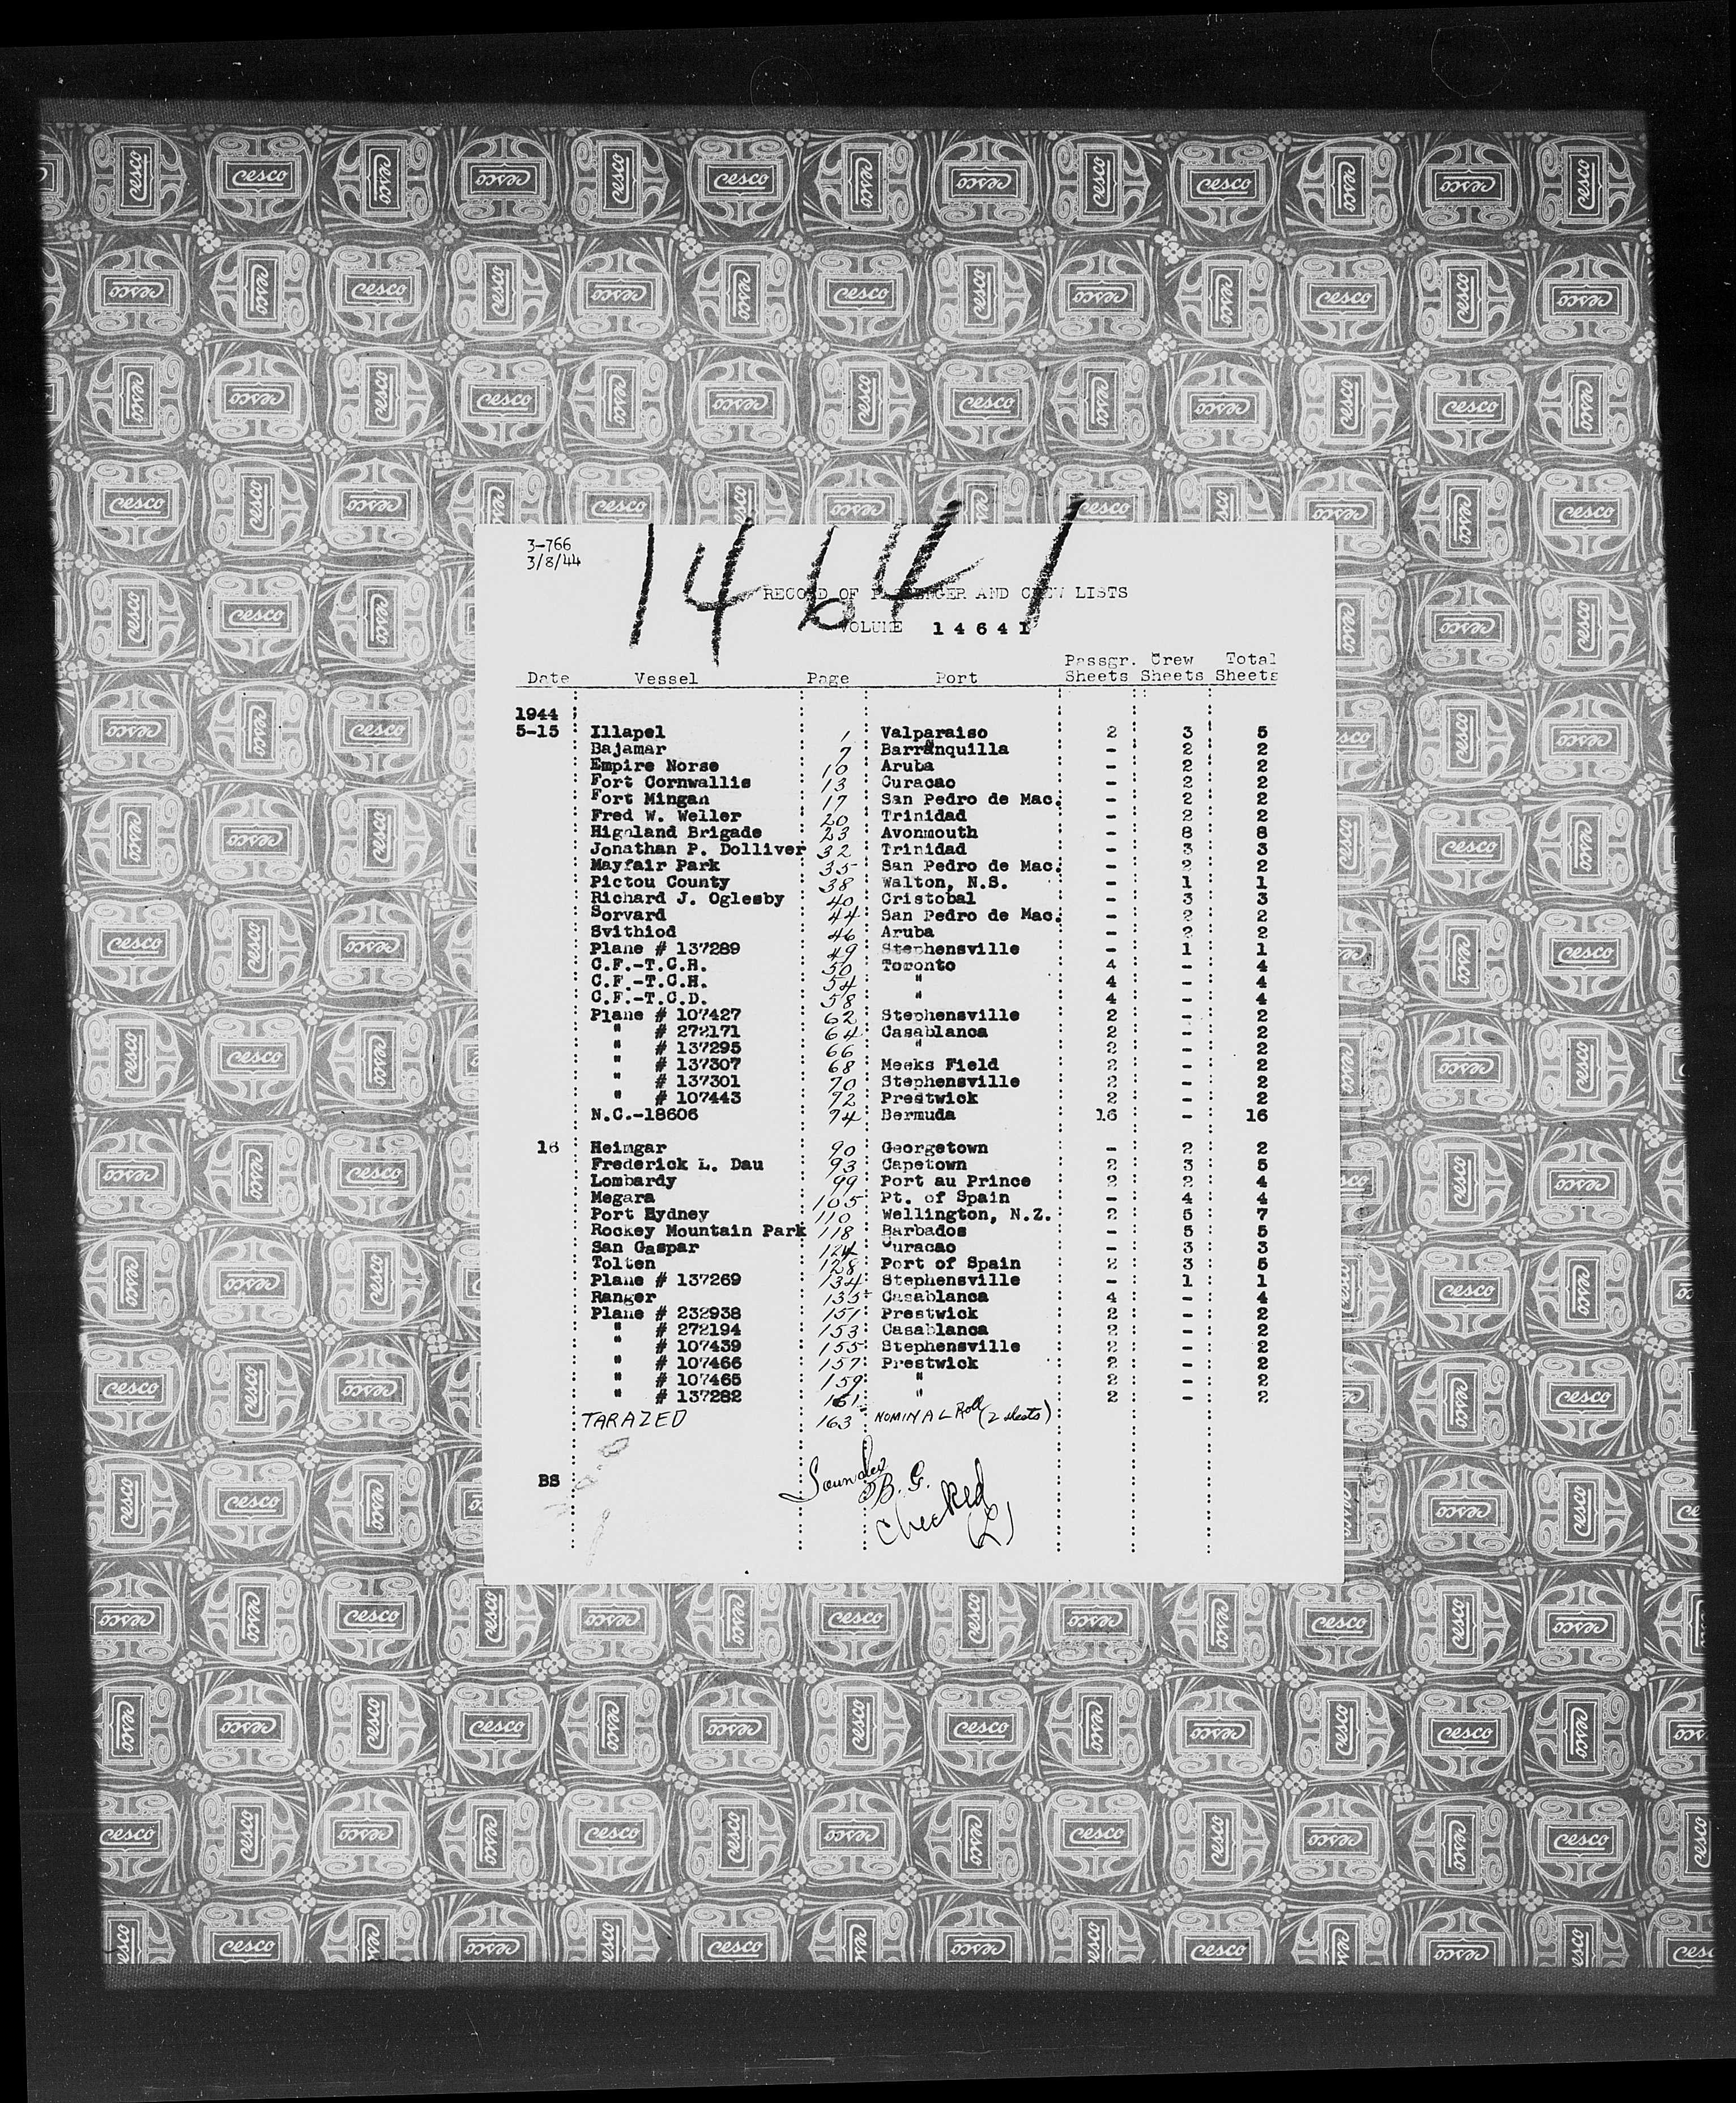 14641
3-766
3/8/44
RECORD OF PASSENGER AND CREW LISTS
VOLUME 14641
Date Vessel Page Port Passgr. Sheets Crew Sheets Total Sheets
1944
5-15 Illapel 1 Valparaiso 2 3 5
Bajamar 7 Barranquilla - 2 2
Empire Norse 10 Aruba - 2 2
Fort Cornwallis 13 Curacao - 2 2
Fort Mingan 17 San Pedro de Mac. - 2 2
Fred W. Weller 20 Trinidad - 2 2
Highland Brigade 23 Avonmouth - 8 8
Jonathan P. Dolliver 32 Trinidad - 3 3
Mayfair Park 35 San Pedro de Mac. - 2 2
Pictou County 38 Walton, N.S. - 1 1
Richard J. Oglesby 40 Cristobal - 3 3
Sorvard 44 San Pedro de Mac. - 2 2
Svithiod 46 Aruba - 2 2
Plane # 137289 49 Stephensville - 1 1
C.F.-T.C.R. 50 Toronto 4 - 4
C.F.-T.C.H. 54 " 4 - 4
C.F.-T.C.D. 58 " 4 - 4
Plane # 107427 62 Stephensville 2 - 2
" # 272171 64 Casablanca 2 - 2
" # 137295 66 " 2 - 2
" # 137307 68 Meeks Field 2 - 2
" # 137301 70 Stephensville 2 - 2
" # 107443 72 Prestwick 2 - 2
N.C.-18606 74 Bermuda 16 - 16
16 Heimgar 90 Georgetown - 2 2
Frederick L. Dau 93 Capetown 2 3 5
Lombardy 99 Port au Prince 2 2 4
Megara 105 Pt. of Spain - 4 4
Port Hydney 110 Wellington, N.Z. 2 5 7
Rockey Mountain Park 118 Barbados - 5 5
San Gaspar 124 Curacao - 3 3
Tolten 128 Port of Spain 2 3 5
Plane # 137269 134 Stephensville - 1 1
Ranger 135 Casablanca 4 - 4
Plane # 232938 151 Prestwick 2 - 2
" # 272194 153 Casablanca 2 - 2
" # 107439 155 Stephensville 2 - 2
" # 107466 157 Prestwick 2 - 2
" # 107465 159 " 2 - 2
" # 137282 161 " 2 - 2
TARAZED 163 NOMINAL Roll (2 sheets)
BS
Saunders
B. G.
Checked